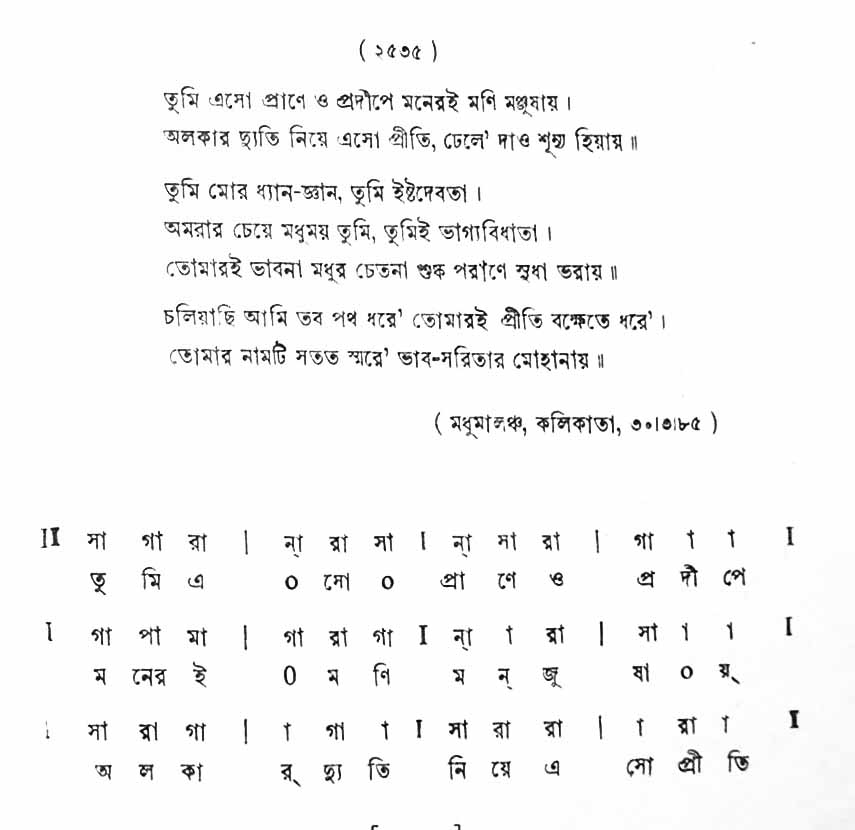 ( ২৫৩৫ )
তুমি এসো প্রাণে ও প্রদীপে মনেরই মণি মঞ্জুষায় ।
অলকার দ্যুতি নিয়ে এসো প্রীতি, ঢেলে' দাও শূন্য হিয়ায় ॥
তুমি মোর ধ্যান-জ্ঞান, তুমি ইষ্টদেবতা ।
অমরার চেয়ে মধুময় তুমি, তুমিই ভাগ্যবিধাতা ।
তোমারই ভাবনা মধুর চেতনা শুষ্ক পরাণে সুধা ভরায় ॥
চলিয়াছি আমি তব পথ ধরে' তোমারই প্রীতি বক্ষেতে ধরে' ।
তোমার নামটি সতত স্মরে' ভাব-সরিতার মোহানায় ॥
( মধুমালঞ্চ, কলিকাতা, ৩০।৩।৮৫ )
II সা গা রা | ন্া রা সা I ন্া সা রা | গা া া I
তু মি এ ০ সো ০ প্রা ণে ও প্র দী পে
I গা পা মা | গা রা গা I ন্া া রা | সা া া I
ম নের ই ০ ম ণি ম ন্ জু ষা ০ য়্
I সা রা গা | া গা া I সা রা রা | া রা া I
অ ল কা র্ দ্যু তি নি য়ে এ সো প্রী তি